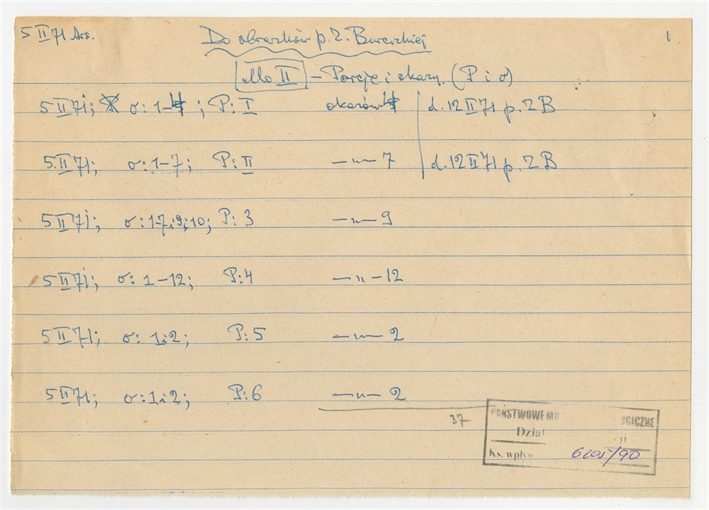 5 II 71 1
Do obrazków p. Z.
Mo II – Porcje i okazy (P i σ)
5 II 71; σ: 1–4; P: I okazów 4 d. 12 II 71 p. 2B
5 II 71; σ: 1–7; P: II —„— 7 d. 12 II 71 p. 2B
5 II 71; σ: 1–7, 9, 10; P: 3 —„— 9
5 II 71; σ: 1–12; P: 4 —„— 12
5 II 71; σ: 1 i 2; P: 5 —„— 2
5 II 71; σ: 1 i 2; P: 6 —„— 2
37
PAŃSTWOWE
Dział
Ks. wpływ /90